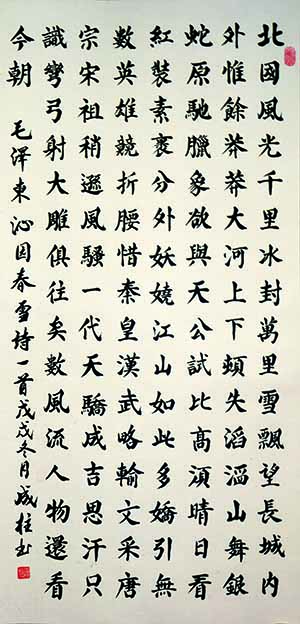 北國風光千里冰封萬里雪飄望長城內
外惟餘莽莽大河上下頓失滔滔山舞銀
蛇原馳臘象欲與天公試比高須晴日看
紅裝素裹分外妖嬈江山如此多嬌引無
數英雄競折腰惜秦皇漢武略輸文采唐
宗宋祖稍遜風騷一代天驕成吉思汗只
識彎弓射大雕俱往矣數風流人物還看
今朝 毛澤東沁园春雪詩一首戊戌冬月成柱书